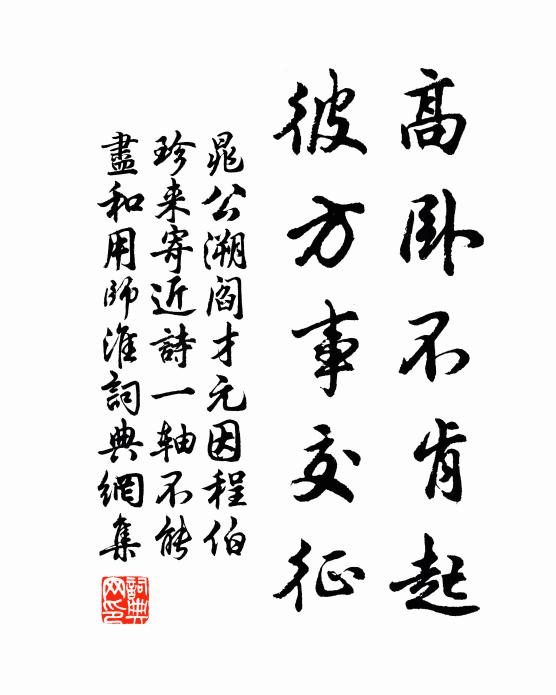 高卧不肯起
彼方事交征
晁公溯阎才元因程伯
珍来寄近詩一轴不能
盡和用師淮詞典網集
詞典網印